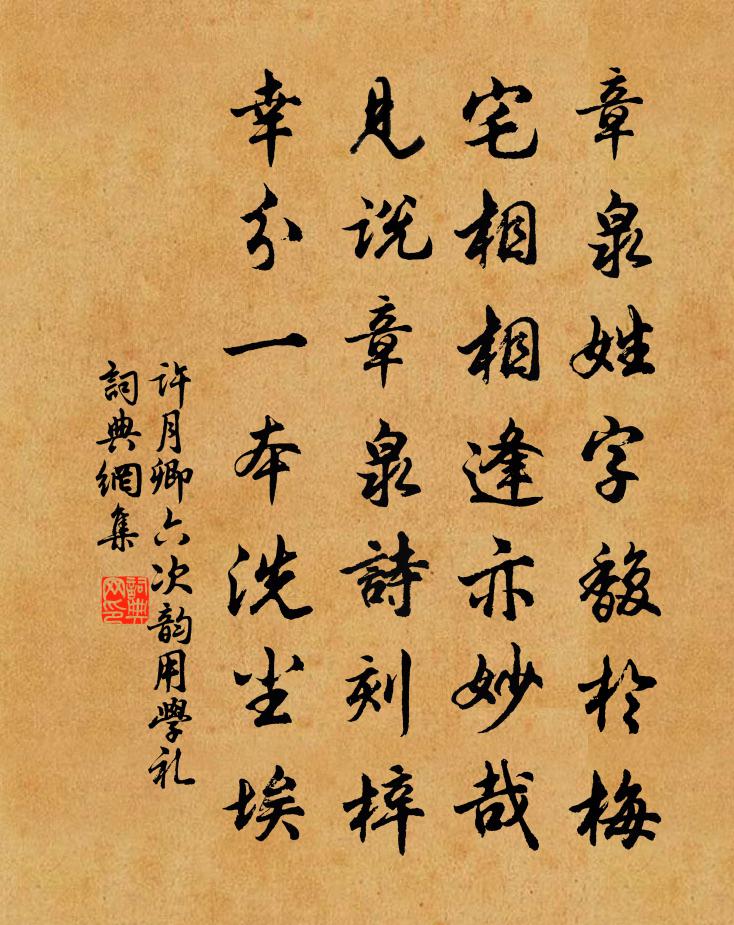 章泉姓字馥於梅
宅相相逢亦妙哉
見説章泉詩刻梓
幸分一本洗尘埃
許月卿六次韵用學礼
詞典網集
詞典网印